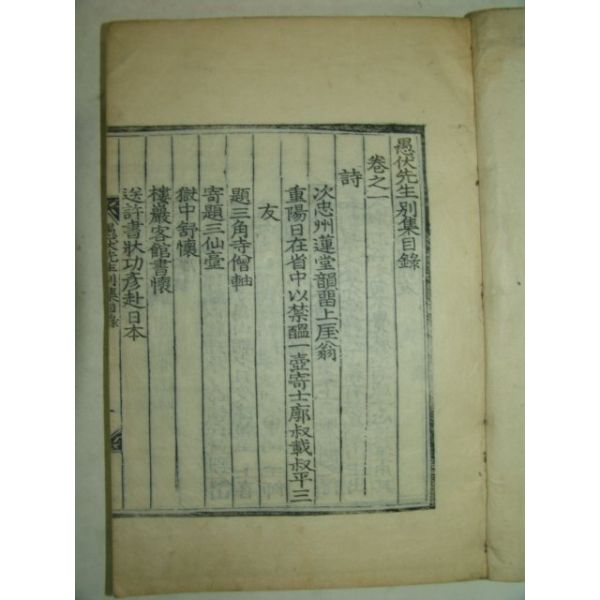 愚伏先生別集目錄
卷之一
詩
次忠州蓮堂韻留上厓翁
重陽日在省中以禁醞一壺寄士廓叔載叔平三
友
題三角寺僧軸
寄題三仙壺
獄中舒懷
樓巖客館書懷
送許書狀功彦赴日本
愚伏先生別集目錄
一